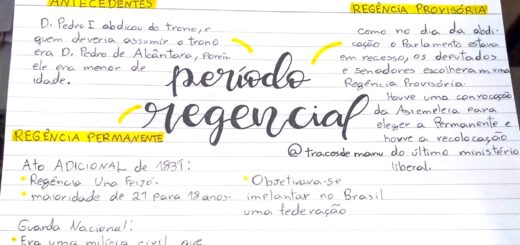 ANTECEDENTES
D. Pedro I abdicou do trono, e
quem deveria assumir o trono
era D. Pedro de Alcântara, porém
ele era menor de
idade.
período
regencial
REGÊNCIA PROVISÓRIA
como no dia da abdi-
cação o Parlamento estava
em recesso, os deputados
e senadores escolheram uma
Regência Provisória.
Houve uma convocação
da Assembleia para
eleger a Permanente e
houve a recolocação
do último ministério
liberal.
@tracosdemanu
REGÊNCIA PERMANENTE
Ato ADICIONAL de 1831:
Regência Una Feijó.
maioridade de 21 para 18 anos.
Objetivava-se
implantar no Brasil
uma federação
Guarda Nacional:
Era uma milícia civil que